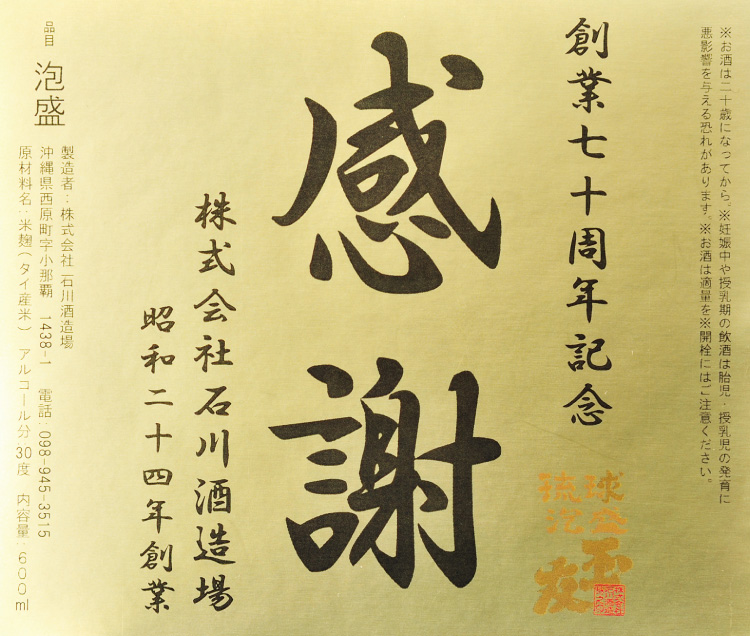 ※お酒は二十歳になってから。※妊娠中や授乳期の飲酒は胎児・授乳児の発育に
悪影響を与える恐れがあります。※お酒は適量を※開栓にはご注意ください。
創業七十周年記念
琉球
泡盛
玉友
感謝
株式会社石川酒造場
昭和二十四年創業
品目 泡盛
製造者：株式会社石川酒造場
沖縄県西原町字小那覇 1438-1 電話：098-945-3515
原材料名：米麹（タイ産米） アルコール分：30度 内容量：600ml